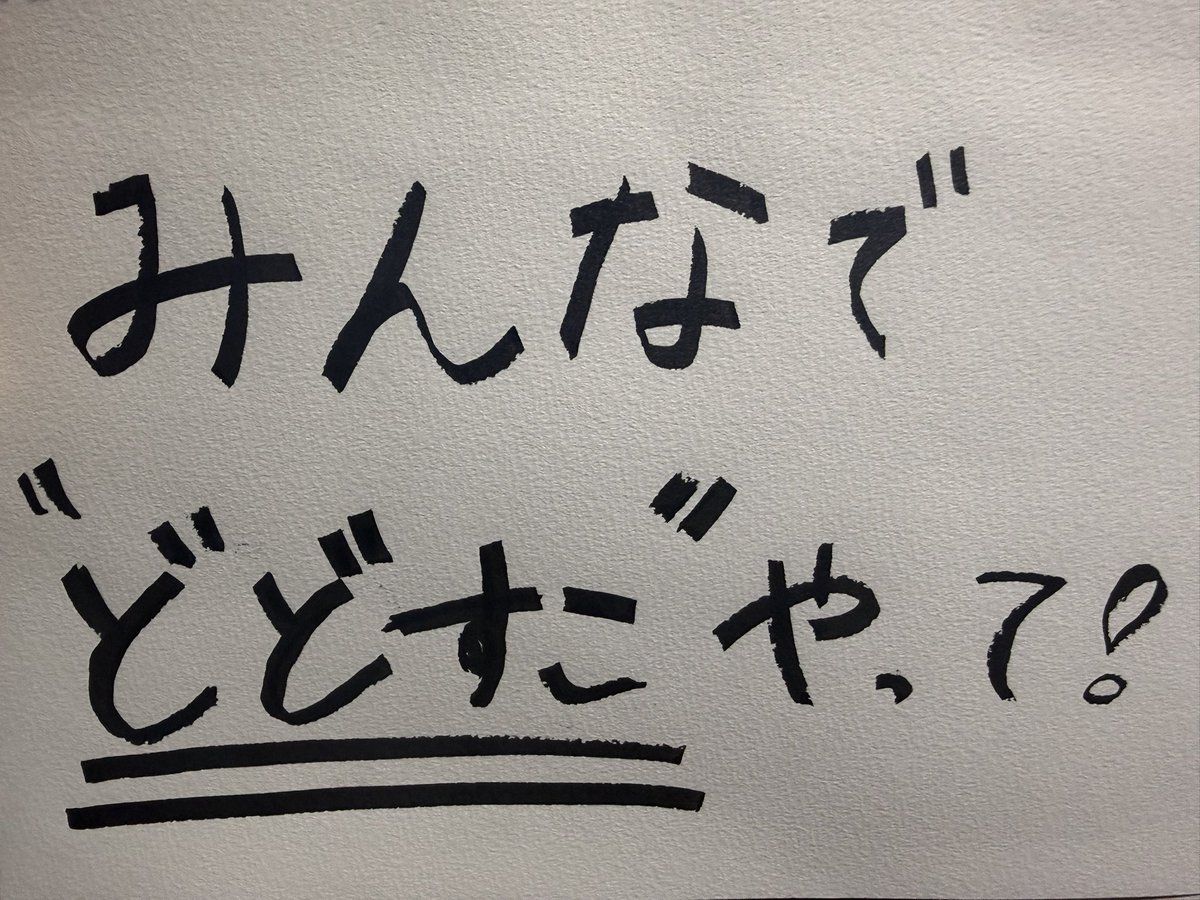 みんなで
"どどすこ"やって!